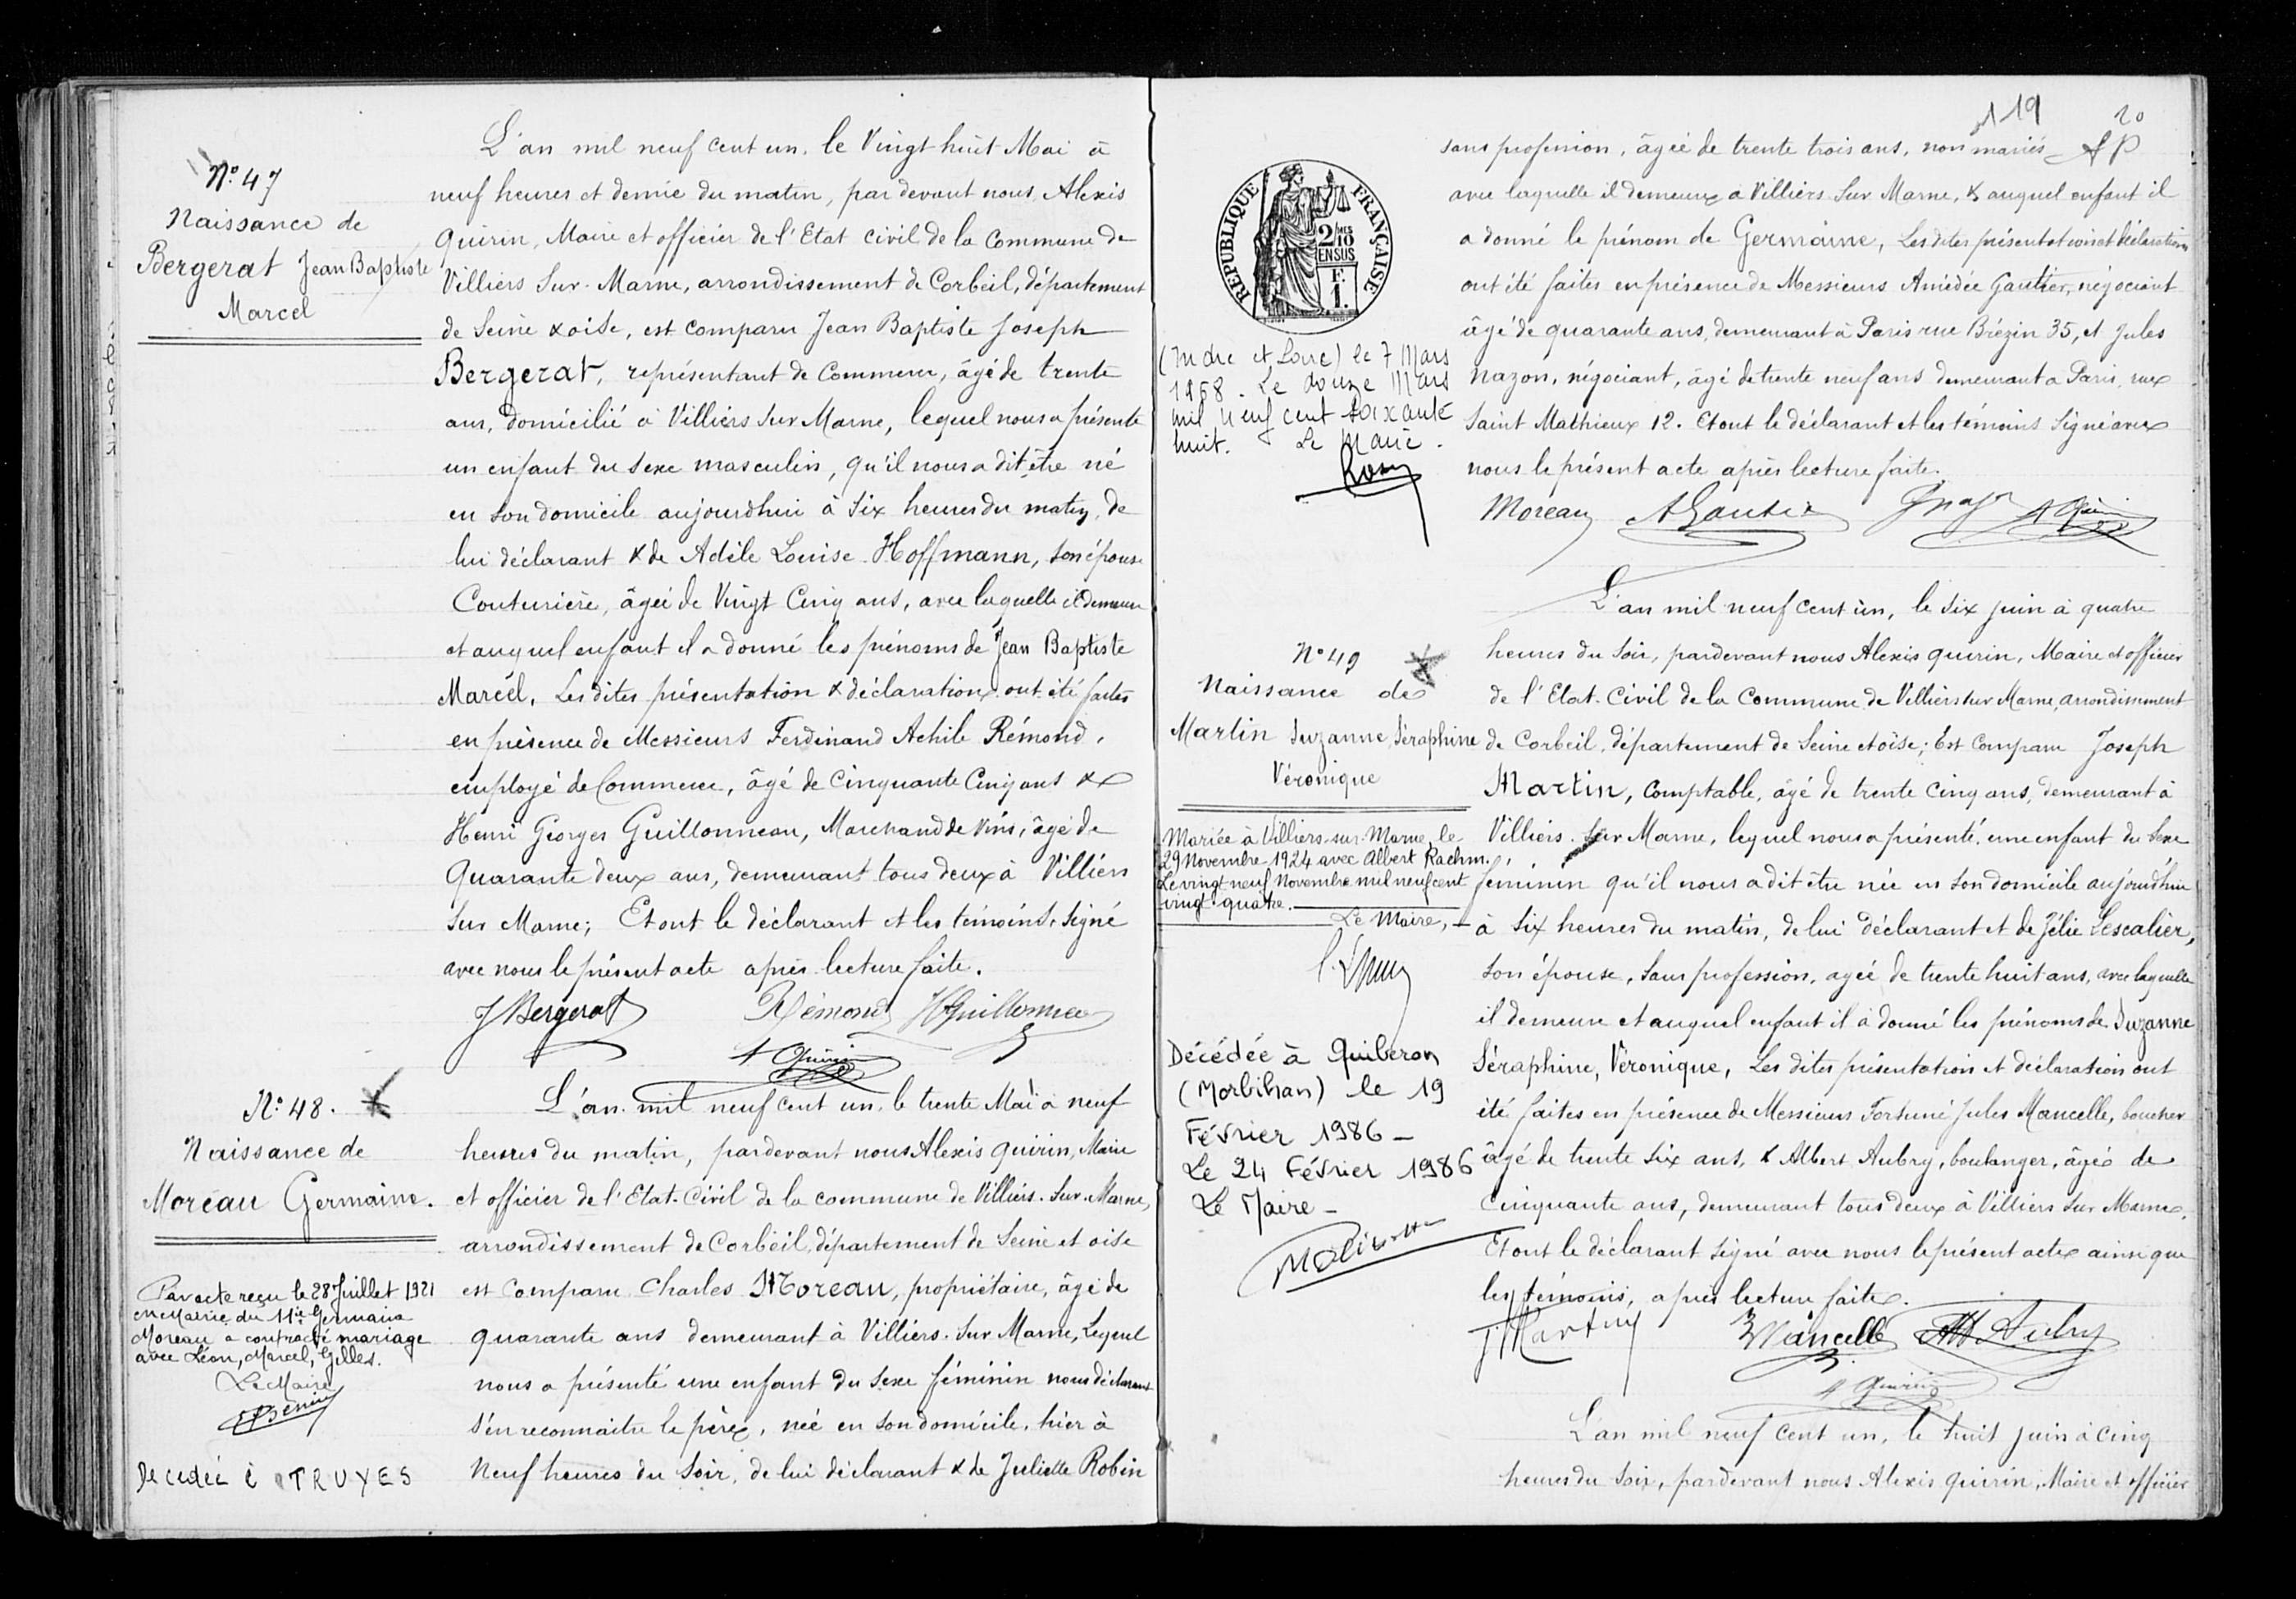 N° 47
Naissance de
Bergerat Jean Baptiste
Marcel
L'an mil neuf cent un, le Vingt huit Mai à
neuf heures et demie du matin, par devant nous Alexis
Quirin, Maire et officier de l'Etat civil de la Commune de
Villiers Sur-Marne, arrondissement de Corbeil, département
de Seine & oise, est comparu Jean Baptiste Joseph
Bergerat, représentant de Commerce, âgé de trente
ans, domicilié à Villiers Sur Marne, lequel nous a présenté
un enfant du sexe masculin, qu'il nous a dit être né
en son domicile aujourd'hui à Six heures du matin, de
lui déclarant & de Adèle Louise Hoffmann, son épouse
Couturière, âgée de Vingt Cinq ans, avec laquelle il demeure
et auquel enfant il a donné les prénoms de Jean Baptiste
Marcel. Les dites présentation & déclaration ont été faites
en présence de Messieurs Ferdinand Achile Rémond,
employé de Commerce, âgé de Cinquante Cinq ans &
Henri Georges Guillonneau, Marchand de Vins, âgé de
Quarante deux ans, demeurant tous deux à Villiers
Sur Marne; Et ont le déclarant et les témoins signé
avec nous le présent acte après lecture faite.
J Bergerat Rémond H Guillonneau
A Quirin
N° 48.
Naissance de
Moreau Germaine.
Par acte reçu le 28 Juillet 1921
en Mairie du 11ie Germaine
Moreau a contracté mariage
avec Léon, Marcel, Gilles.
Le Maire
décédée à TRUYES
L'an mil neuf cent un, le trente Mai à neuf
heures du matin, pardevant nous Alexis Quirin, Maire
et officier de l'Etat-Civil de la commune de Villiers-Sur-Marne,
arrondissement de Corbeil, département de Seine et oise
est comparu Charles Moreau, propriétaire, âgé de
quarante ans demeurant à Villiers-Sur Marne, Lequel
nous a présenté une enfant du sexe féminin nous déclarant
s'en reconnaitre le père, née en son domicile, hier à
Neuf heures du Soir, de lui déclarant & de Juliette Robin
119 20
sans profession, âgée de trente trois ans, non mariés AP
avec laquelle il demeure à Villiers Sur Marne, & auquel enfant il
a donné le prénom de Germaine, Les dites présentation et déclaration
ont été faites en présence de Messieurs Amédée Gautier, négociant
âgé de quarante ans, demeurant à Paris rue Brézin 35, et Jules
Nazon, négociant, âgé de trente neuf ans demeurant à Paris, rue
Saint Mathieux 12. Et ont le déclarant et les témoins Signé avec
nous le présent acte après lecture faite.
Moreau A Gautier A Quirin
REPUBLIQUE FRANÇAISE
2/10
EN SUS
F.
1.
(Indre et Loire) le 7 Mars
1968. Le douze Mars
mil neuf cent soixante
huit. Le Maire.
N° 49
Naissance de
Martin Suzanne Séraphine
Véronique
Mariée à Villiers-sur-Marne le
29 Novembre 1924 avec Albert Rachm.
Le vingt neuf Novembre mil neuf cent
vingt-quatre.
Le Maire,
Décédée à Quiberon
(Morbihan) le 19
Février 1986 -
Le 24 Février 1986
Le Maire -
L'an mil neuf cent un, le Six juin à quatre
heures du Soir, pardevant nous Alexis Quirin, Maire et officier
de l'Etat-Civil de la Commune de Villiers sur Marne, arrondissement
de Corbeil, département de Seine et oise; Est comparu Joseph
Martin, Comptable, âgé de trente Cinq ans, demeurant à
Villiers-Sur Marne, lequel nous a présenté une enfant du Sexe
féminin qu'il nous a dit être née en son domicile aujourd'hui
à six heures du matin, de lui déclarant et de Zélie Lescalier,
son épouse, Sans profession, agée de trente huit ans, avec laquelle
il demeure et auquel enfant il a donné les prénoms de Suzanne
Séraphine, Véronique, Les dites présentation et déclaration ont
été faites en présence de Messieurs Fortuné Jules Mancelle, boucher
âgé de trente Six ans, & Albert Aubry, boulanger, âgé de
Cinquante ans, demeurant tous deux à Villiers Sur Marne.
Et ont le déclarant signé avec nous le présent acte ainsi que
les témoins, après lecture faite.
J Martin Mancelle A Aubry
A Quirin
L'an mil neuf cent un, le huit juin à cinq
heures du Soir, pardevant nous Alexis Quirin, Maire et officier